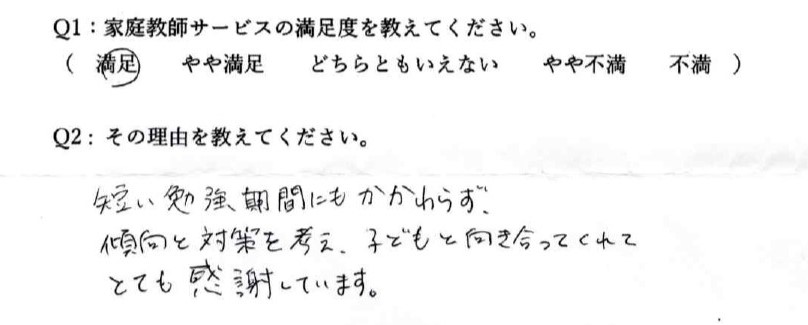 Q1：家庭教師サービスの満足度を教えてください。
（　満足　　やや満足　　どちらともいえない　　やや不満　　不満　）
Q2：その理由を教えてください。
短い勉強期間にもかかわらず、
傾向と対策を考え、子どもと向き合ってくれて
とても感謝しています。